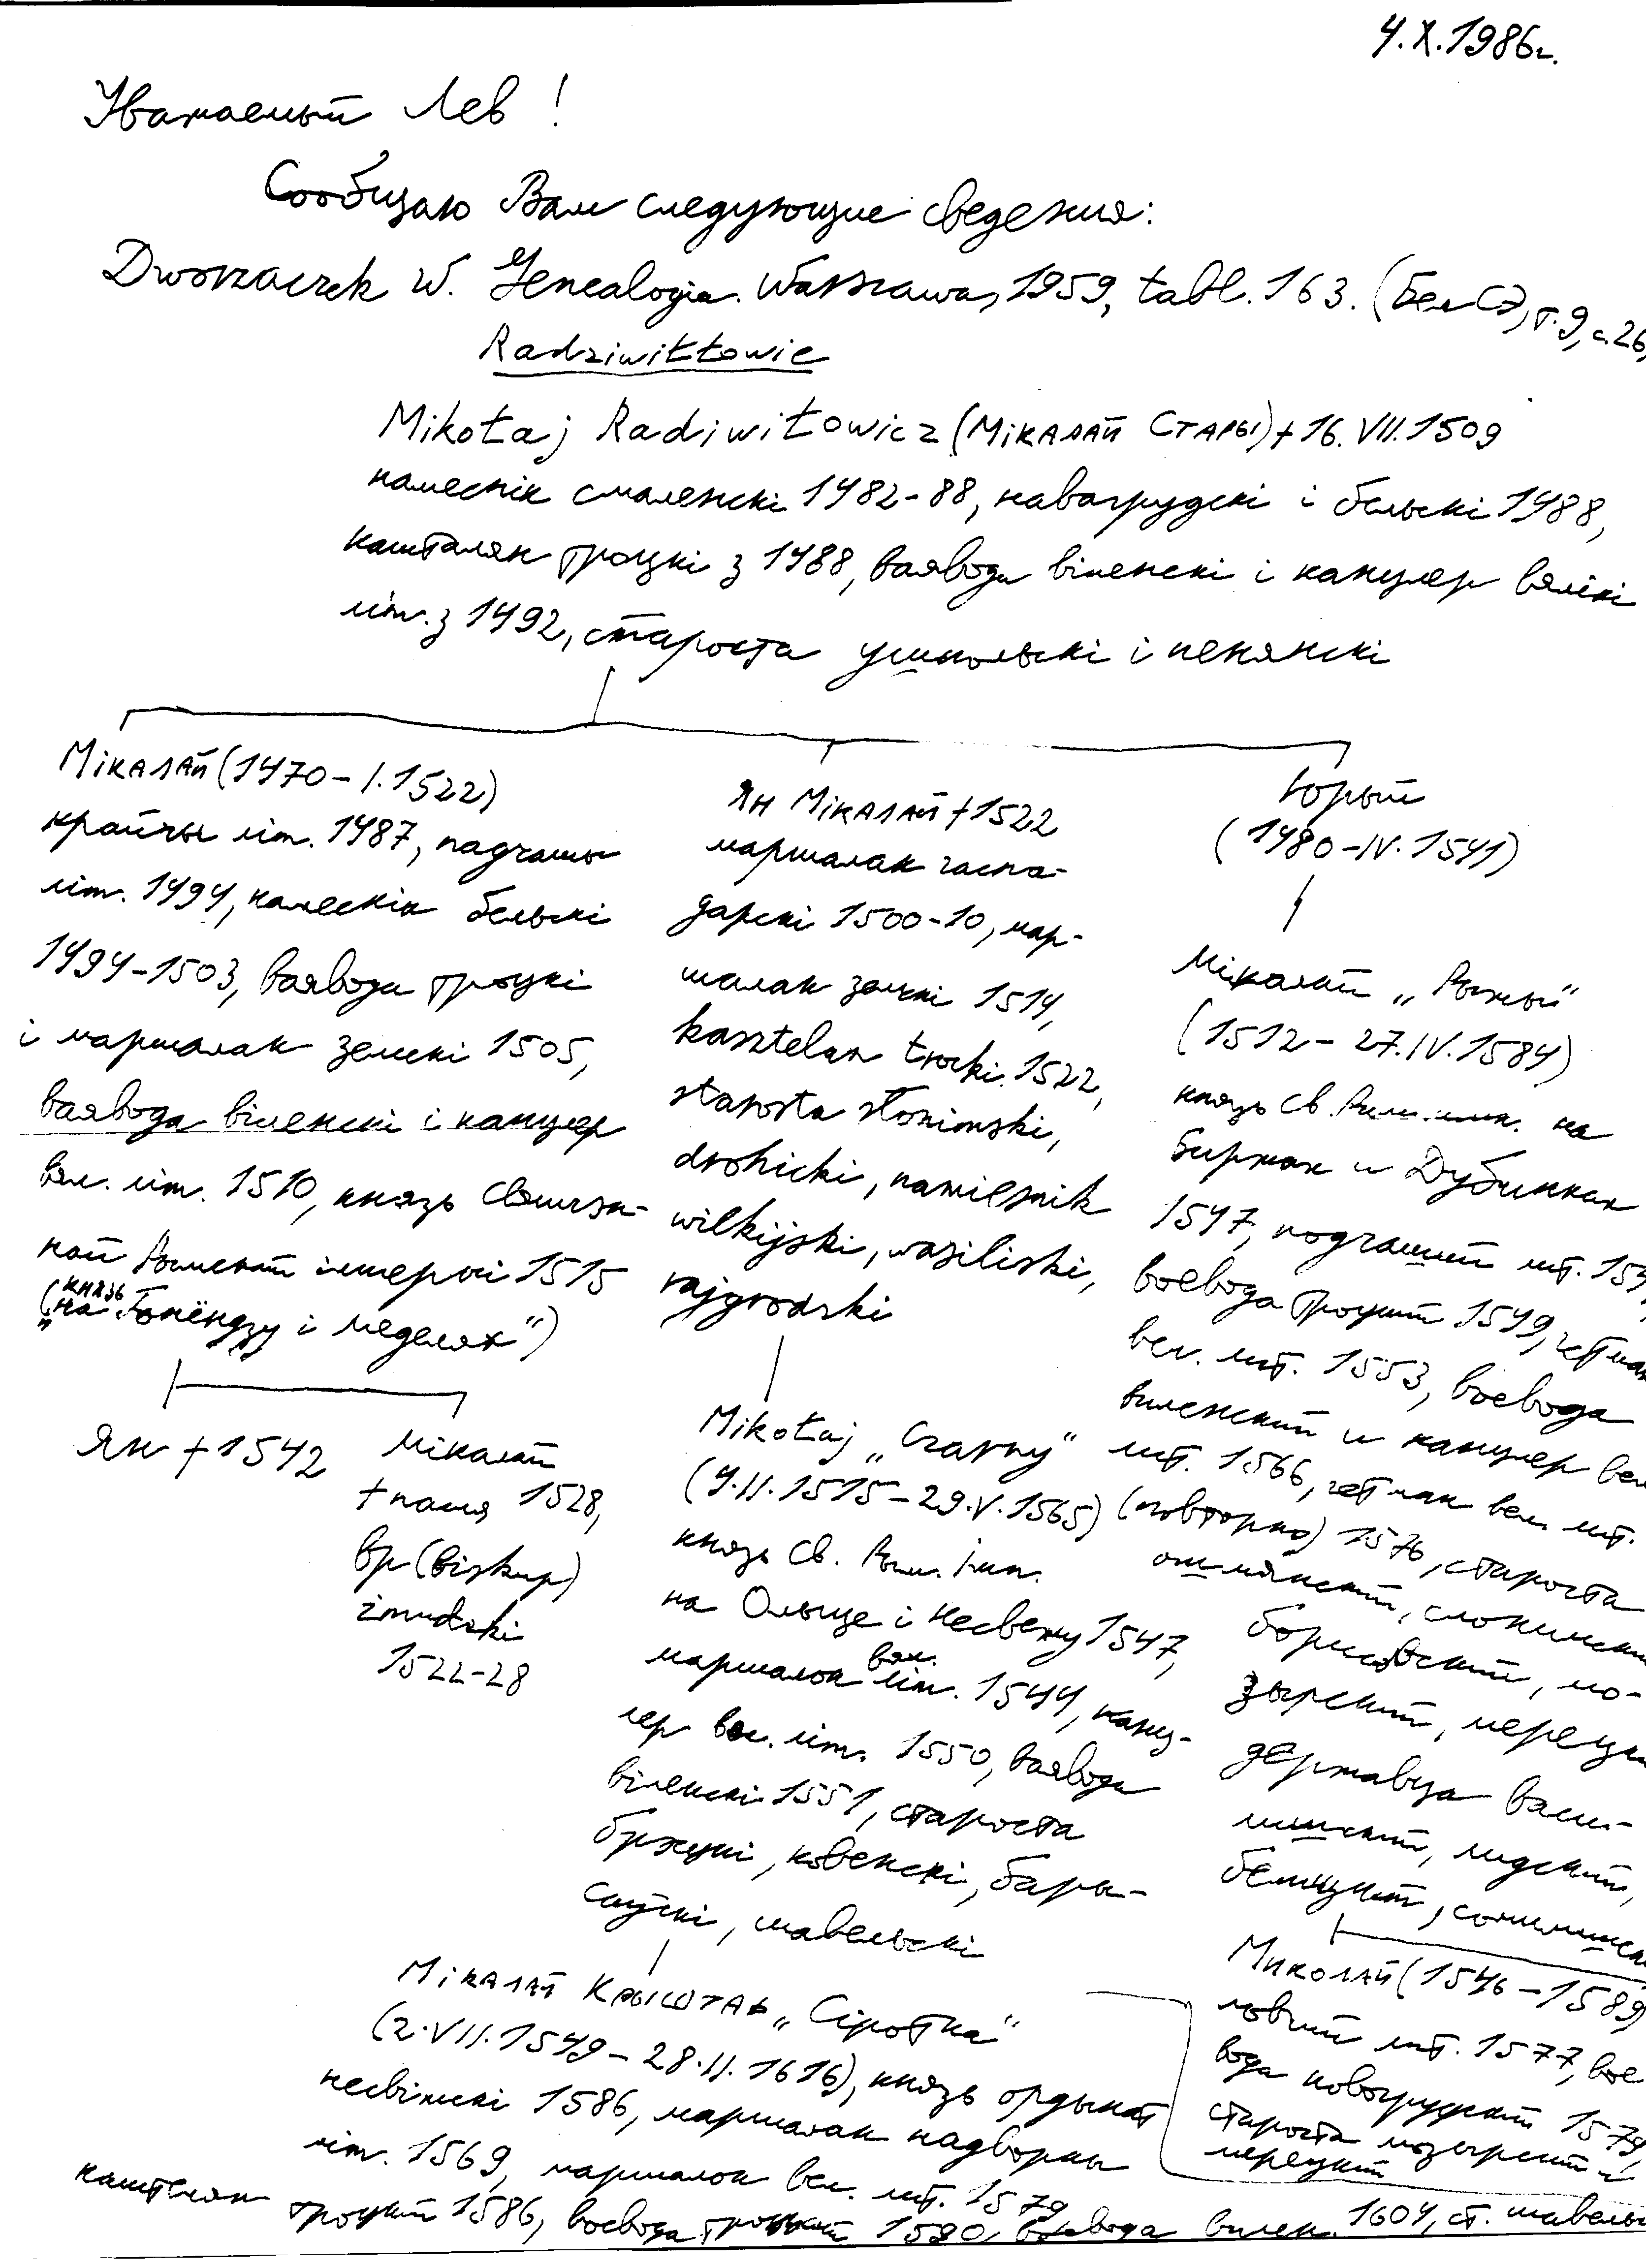 4.X.1986г.
Уважаемый Лев!
Сообщаю Вам следующие сведения:
Dworzaczek W. Genealogia. Warszawa, 1959, tabl. 163. (БелСЭ, т. 9, с. 26,
Radziwiłłowie
Mikołaj Radiwiłowicz (Мікалай Стары) + 16.VII.1509
намеснік смаленскі 1482-88, навагрудскі і бельскі 1488,
кашталян троцкі з 1488, ваявода віленскі і канцлер вялікі
літ. з 1492, староста ушпольскі і пенянскі
Мікалай (1470 – I.1522)
крайчы літ. 1487, падчашы
літ. 1494, намеснік бельскі
1494-1503, ваявода троцкі
і маршалак земскі 1505,
ваявода віленскі і канцлер
вял. літ. 1510, князь Свяшчэн-
най Рымскай імперыі 1515
князь
(„на Гонёндзу і Меделях")
Ян + 1542
Мікалай
+ пасля 1528,
bp (biskup)
żmudzki
1522-28
Ян Мікалай + 1522
маршалак гаспа-
дарскі 1500-10, мар-
шалак земскі 1514,
kasztelan trocki 1522,
starosta słonimski,
drohicki, namiesnik
wilkijski, wasiliski,
rajgrodzki
Mikołaj „Czarny"
(4.II.1515 – 29.V.1565)
князь Св. Рым. Імп.
на Олыце і Несвежу 1547,
вял.
маршалок літ. 1544, канц-
лер вял. літ. 1550, ваявода
віленскі 1551, староста
бржецкі, ковенскі, бары-
саўскі, шавельскі
Мікалай Крыштаф „Сіротка"
(2.VII.1549 – 28.II.1616), князь ордынат
несвіжскі 1586, маршалак надворны
літ. 1569, маршалок вел. лит. 1579
каштелян троцкий 1586, воевода троцкий 1590, воевода вилен. 1604, ст. шавельс
Юрый
(1480 – IV.1541)
Мікалай „Рыжый"
(1512 – 27.IV.1584)
князь Св. Рим. имп. на
Биржах и Дубинках
1547, подчаший лит. 154
воевода троцкий 1549, гетман
вел. лит. 1553, воевода
виленский и канцлер вел
лит. 1566, гетман вел. лит.
(повторно) 1576, староста
ошмянский, слонимский
борисовский, мо-
зырский, мерецки
державца васи-
лишский, лидский,
белицкий, сомилишски
Миколай (1546 – 1589)
ловчий лит. 1577, вое
вода новогрудский 1579,
староста мозырский и
мерецкий